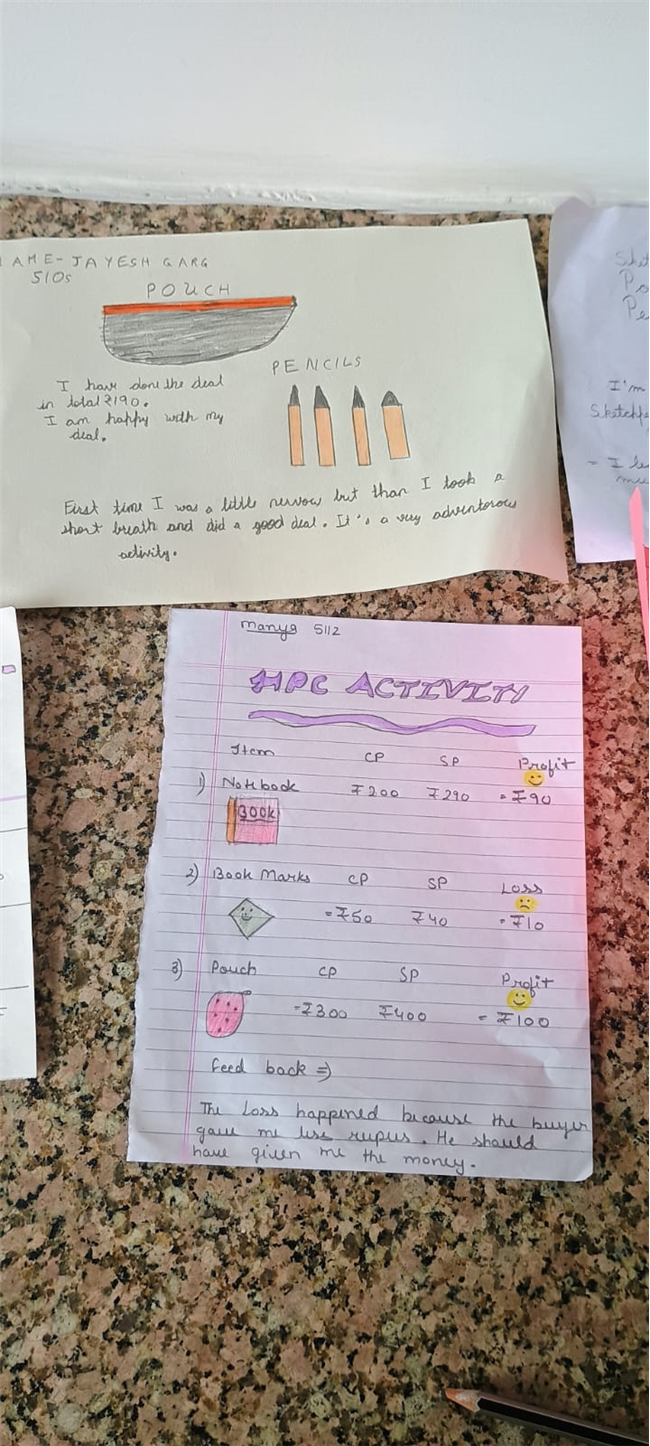 AME- JAYESH GARG
510s
POUCH
PENCILS
I have done the deal
in total ₹190.
I am happy with my
deal.
First time I was a little nervow but than I took a
short breath and did a good deal. It's a very adventorous
activity.
I'm
manya 5112
HPC ACTIVITY
Item CP SP Profit
1) Notebook ₹200 ₹290 = ₹90
BOOK
2) Book Marks CP SP Loss
= ₹50 ₹40 = ₹10
3) Pouch CP SP Profit
= ₹300 ₹400 = ₹100
Feed back =)
The Loss happened because the buyer
gave me less rupus. He should
have given me the money.